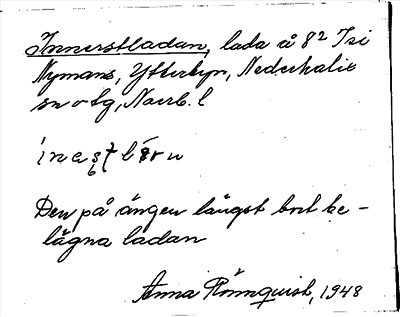 Innerstladan, lada å 8² Isi
Nymans, Ytterbyn, Nederkalix
sn o tg, Norrb. l
Den på ängen längst bort be-
lägna ladan
Anna Rönnquist, 1948